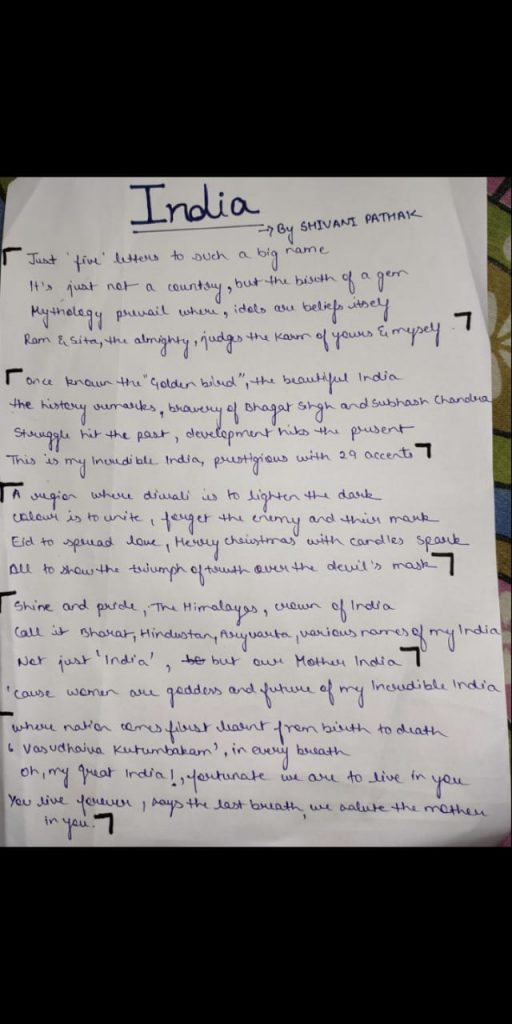 India
→ By SHIVANI PATHAK
Just 'five' letters to such a big name
It's just not a country, but the birth of a gem
Mythology prevail where, idols are beliefs itself
Ram & Sita, the almighty, judges the Karm of yours & myself.
Once known the "Golden bird", the beautiful India
the history remarks, bravery of Bhagat Singh and Subhash Chandra
Struggle hit the past, development hits the present
This is my Incredible India, prestigious with 29 accents
A region where diwali is to lighten the dark
Colour is to unite, forget the enemy and their mark
Eid to spread love, Merry christmas with candles spark
All to show the triumph of truth over the devil's mask
Shine and pride, The Himalayas, crown of India
Call it Bharat, Hindustan, Aryvarta, various names of my India
Not just 'India', but our Mother India
'cause women are goddess and future of my Incredible India
where nation comes first learnt from birth to death
'Vasudhaiva Kutumbakam', in every breath
Oh, my great India!, fortunate we are to live in you
You live forever, says the last breath, we salute the mother
in you.